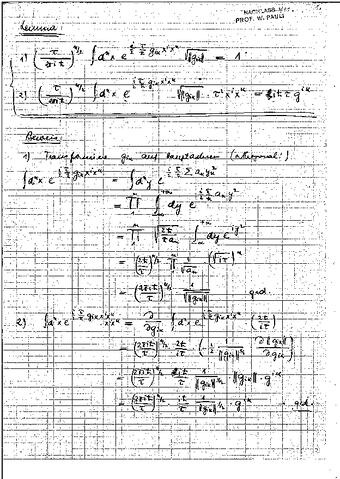 NACHLASS
PROF. W. PAULI
Lemma
1) (τ/2πit)^{n/2} ∫ dⁿx e^{i/2 τ/t g_{ik} x^i x^k} √‖g_{ik}‖ = 1
2) (τ/2πit)^{n/2} ∫ dⁿx e^{i/2 τ/t g_{ik} x^i x^k} √‖g_{ik}‖ · τ x^i x^k = it g^{ik}
Beweis:
1) Transformiere g_{ik} auf Hauptachsen (orthogonal!)
∫ dⁿx e^{i/2 τ/t g_{ik} x^i x^k} = ∫ dⁿy e^{i/2 τ/t Σ a_n y²}
= Π ∫ dy e^{i/2 τ/t a_n y²}
= Π √(2t/τa_n) ∫ dy e^{iy²}
= (2t/τ)^{n/2} Π 1/√a_n (√iπ)ⁿ
= (2πit/τ)^{n/2} 1/√‖g_{ik}‖ qed.
2) ∫ dⁿx e^{i/2 τ/t g_{ik} x^i x^k} x^i x^k = ∂/∂g_{ik} ∫ dⁿx e^{i/2 τ/t g_{ik} x^i x^k} (2t/iτ)
= (2πit/τ)^{n/2} 2t/iτ (-1/2 1/‖g_{ik}‖^{3/2} ∂‖g_{ik}‖/∂g_{ik})
= (2πit/τ)^{n/2} it/τ 1/‖g_{ik}‖^{3/2} · ‖g_{ik}‖ · g^{ik}
= (2πit/τ)^{n/2} · it/τ 1/‖g_{ik}‖^{1/2} · g^{ik} qed.